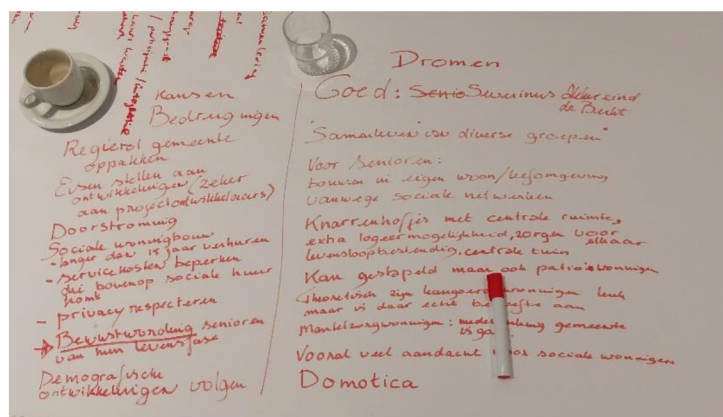 Kansen
Bedreigingen
Regierol gemeente
oppakken
Eisen stellen aan
ontwikkelingen (zeker
aan projectontwikkelaars)
Doorstroming
Sociale woningbouw
- langer dan 15 jaar verhuren
- servicekosten beperken
die bovenop sociale huur
komt
- privacy respecteren
→ Bewustwording senioren
van hun levensfase
Demografische
ontwikkelingen volgen
Dromen
Goed: Senio Severinus
de Bucht
"Samenleven van diverse groepen"
Voor senioren:
bouwen in eigen woon/leefomgeving
vanwege sociale netwerken
Knarrenhofjes met centrale ruimte,
extra logeermogelijkheid, zorgen voor
elkaar
levensloopbestendig, centrale tuin
Kan gestapeld maar ook patiowoningen
Theoretisch zijn kangoeroewoningen leuk
maar is daar echt behoefte aan
Mantelzorgwoningen: gemeente
Vooral veel aandacht voor sociale woningen
Domotica